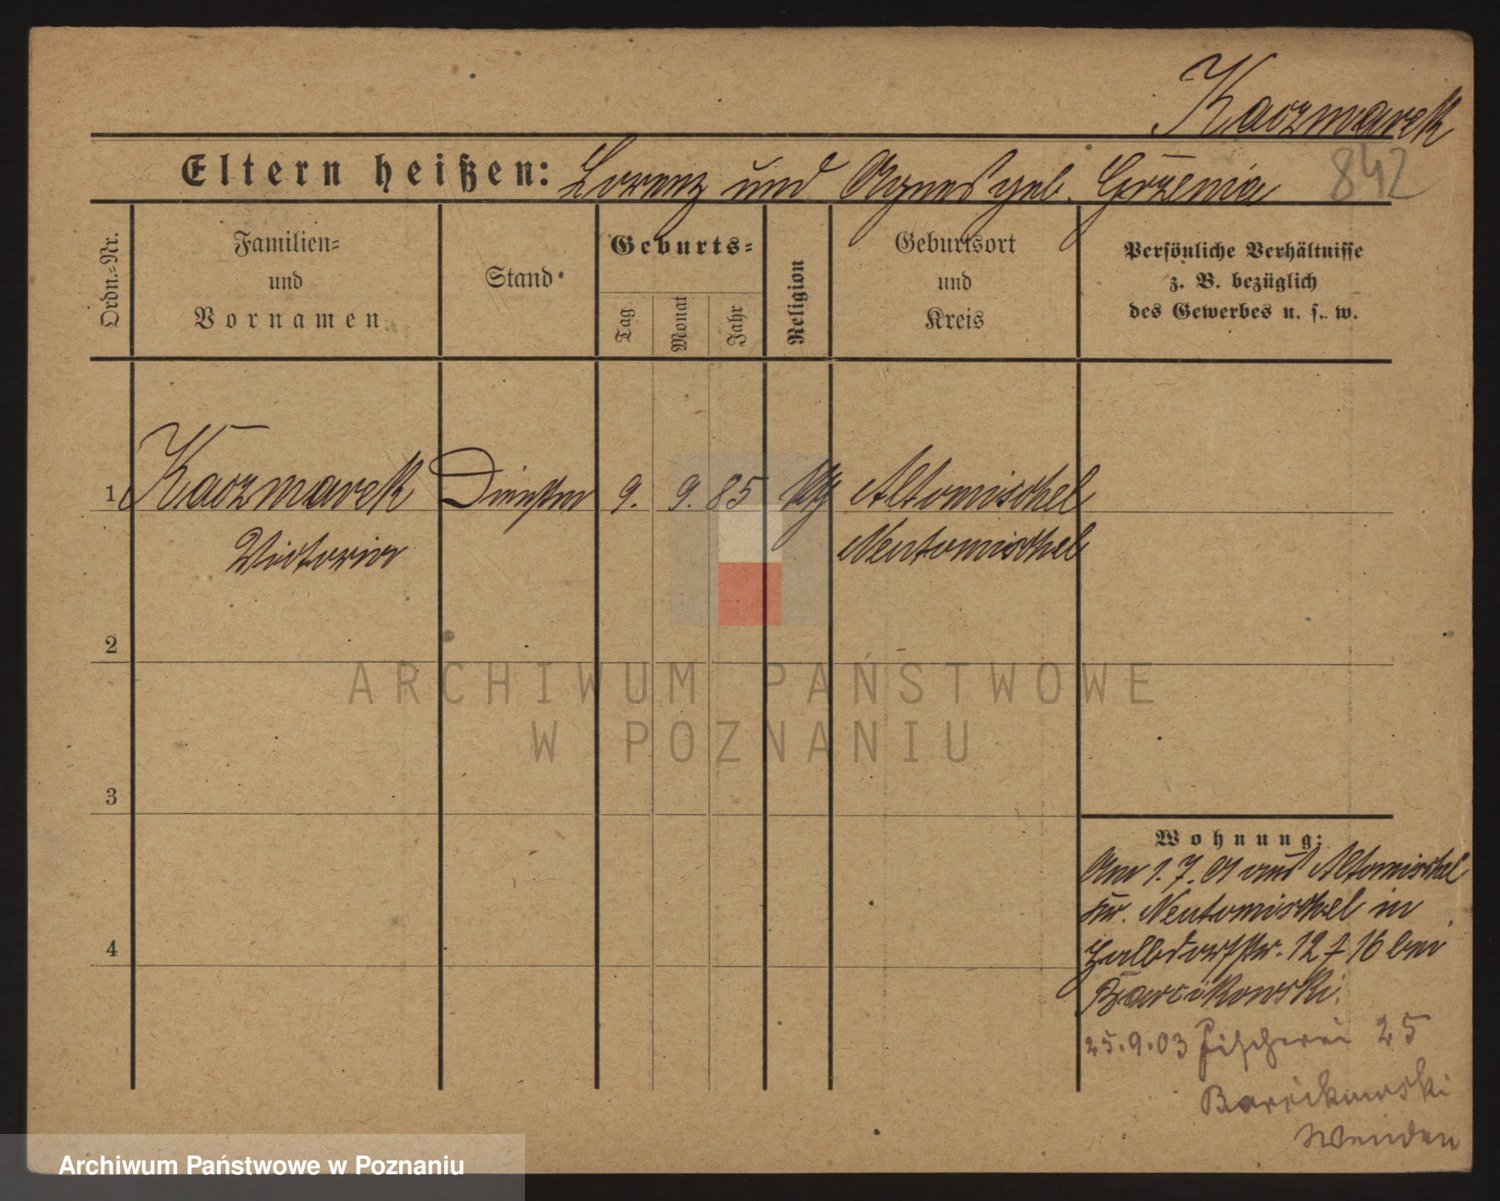 Kaczmarek
842
Eltern heißen: Lorenz und Agnes geb. Górzenia
Ordn.-Nr.
Familien-
und
Vornamen
Stand
Geburts-
Tag
Monat
Jahr
Religion
Geburtsort
und
Kreis
Persönliche Verhältnisse
z. B. bezüglich
des Gewerbes u. s. w.
1 Kaczmarek Dienstm 9. 9. 85 Altomischel
Victoria Neutomischel
2
3
4
ARCHIWUM PAŃSTWOWE
W POZNANIU
Wohnung:
Am 1.7.01 aus Altomischel
Kr. Neutomischel in
Halbdorfstr. 12 f 16 bei
Barcikowski.
25.9.03 Fischerei 25
Barcikowski
Archiwum Państwowe w Poznaniu